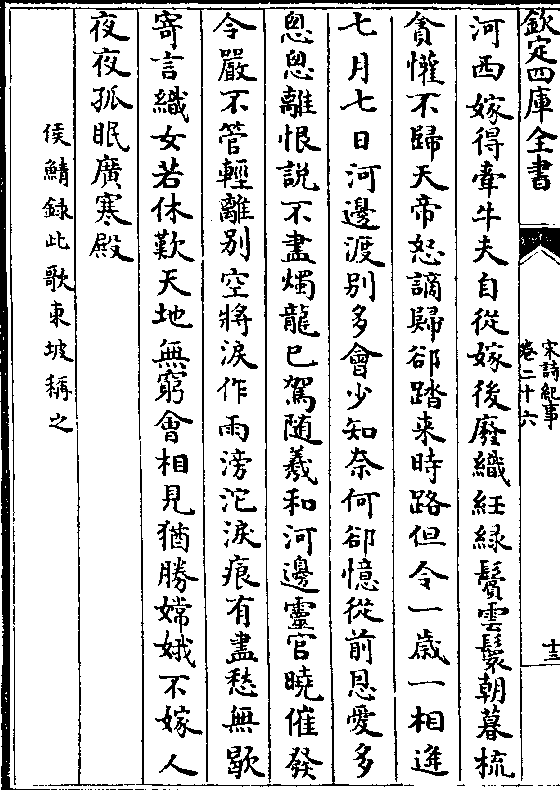 欽定四庫全書
宋詩紀事
卷二十六
十三
河西嫁得牽牛夫自從嫁後廢織紝緑鬢雲鬟朝暮梳
貪懽不歸天帝怒謫歸郤踏来時路但令一歳一相逢
七月七日河邊渡别多會少知奈何郤憶從前恩愛多
悤悤離恨説不盡燭龍已駕随羲和河邊靈官曉催發
令嚴不管輕離别空將淚作雨滂沱淚痕有盡愁無歇
寄言織女若休歎天地無窮會相見猶勝嫦娥不嫁人
夜夜孤眠廣寒殿
侯鯖録此歌東坡稱之